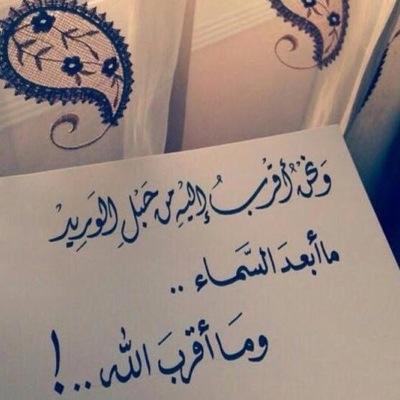 وَنَحْنُ أَقْرَبُ إِلَيْهِ مِن حَبْلِ الوَرِيدِ
ما أبعدَ السَّماء ..
وَمَا أقربَ الله ...!